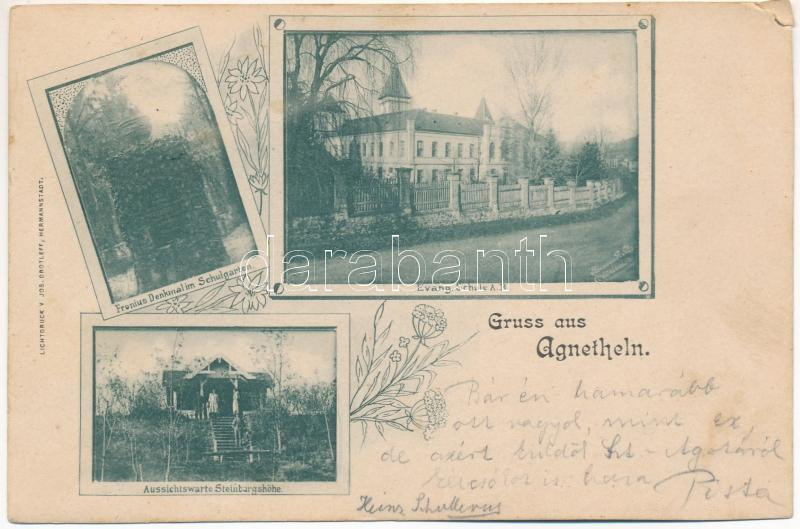 Fronius Denkmal im Schulgarten.
Evang. Schule A. B.
LICHTDRUCK V. JOS. DROTLEFF, HERMANNSTADT.
darabanth
Gruss aus
Agnetheln.
Aussichtswarte Steinburgshöhe.
Bár én hamarább
ott vagyok, mint ez,
de azért küldöl Szt-Ágotáról
is haza
Pista
Heinz Schullerus